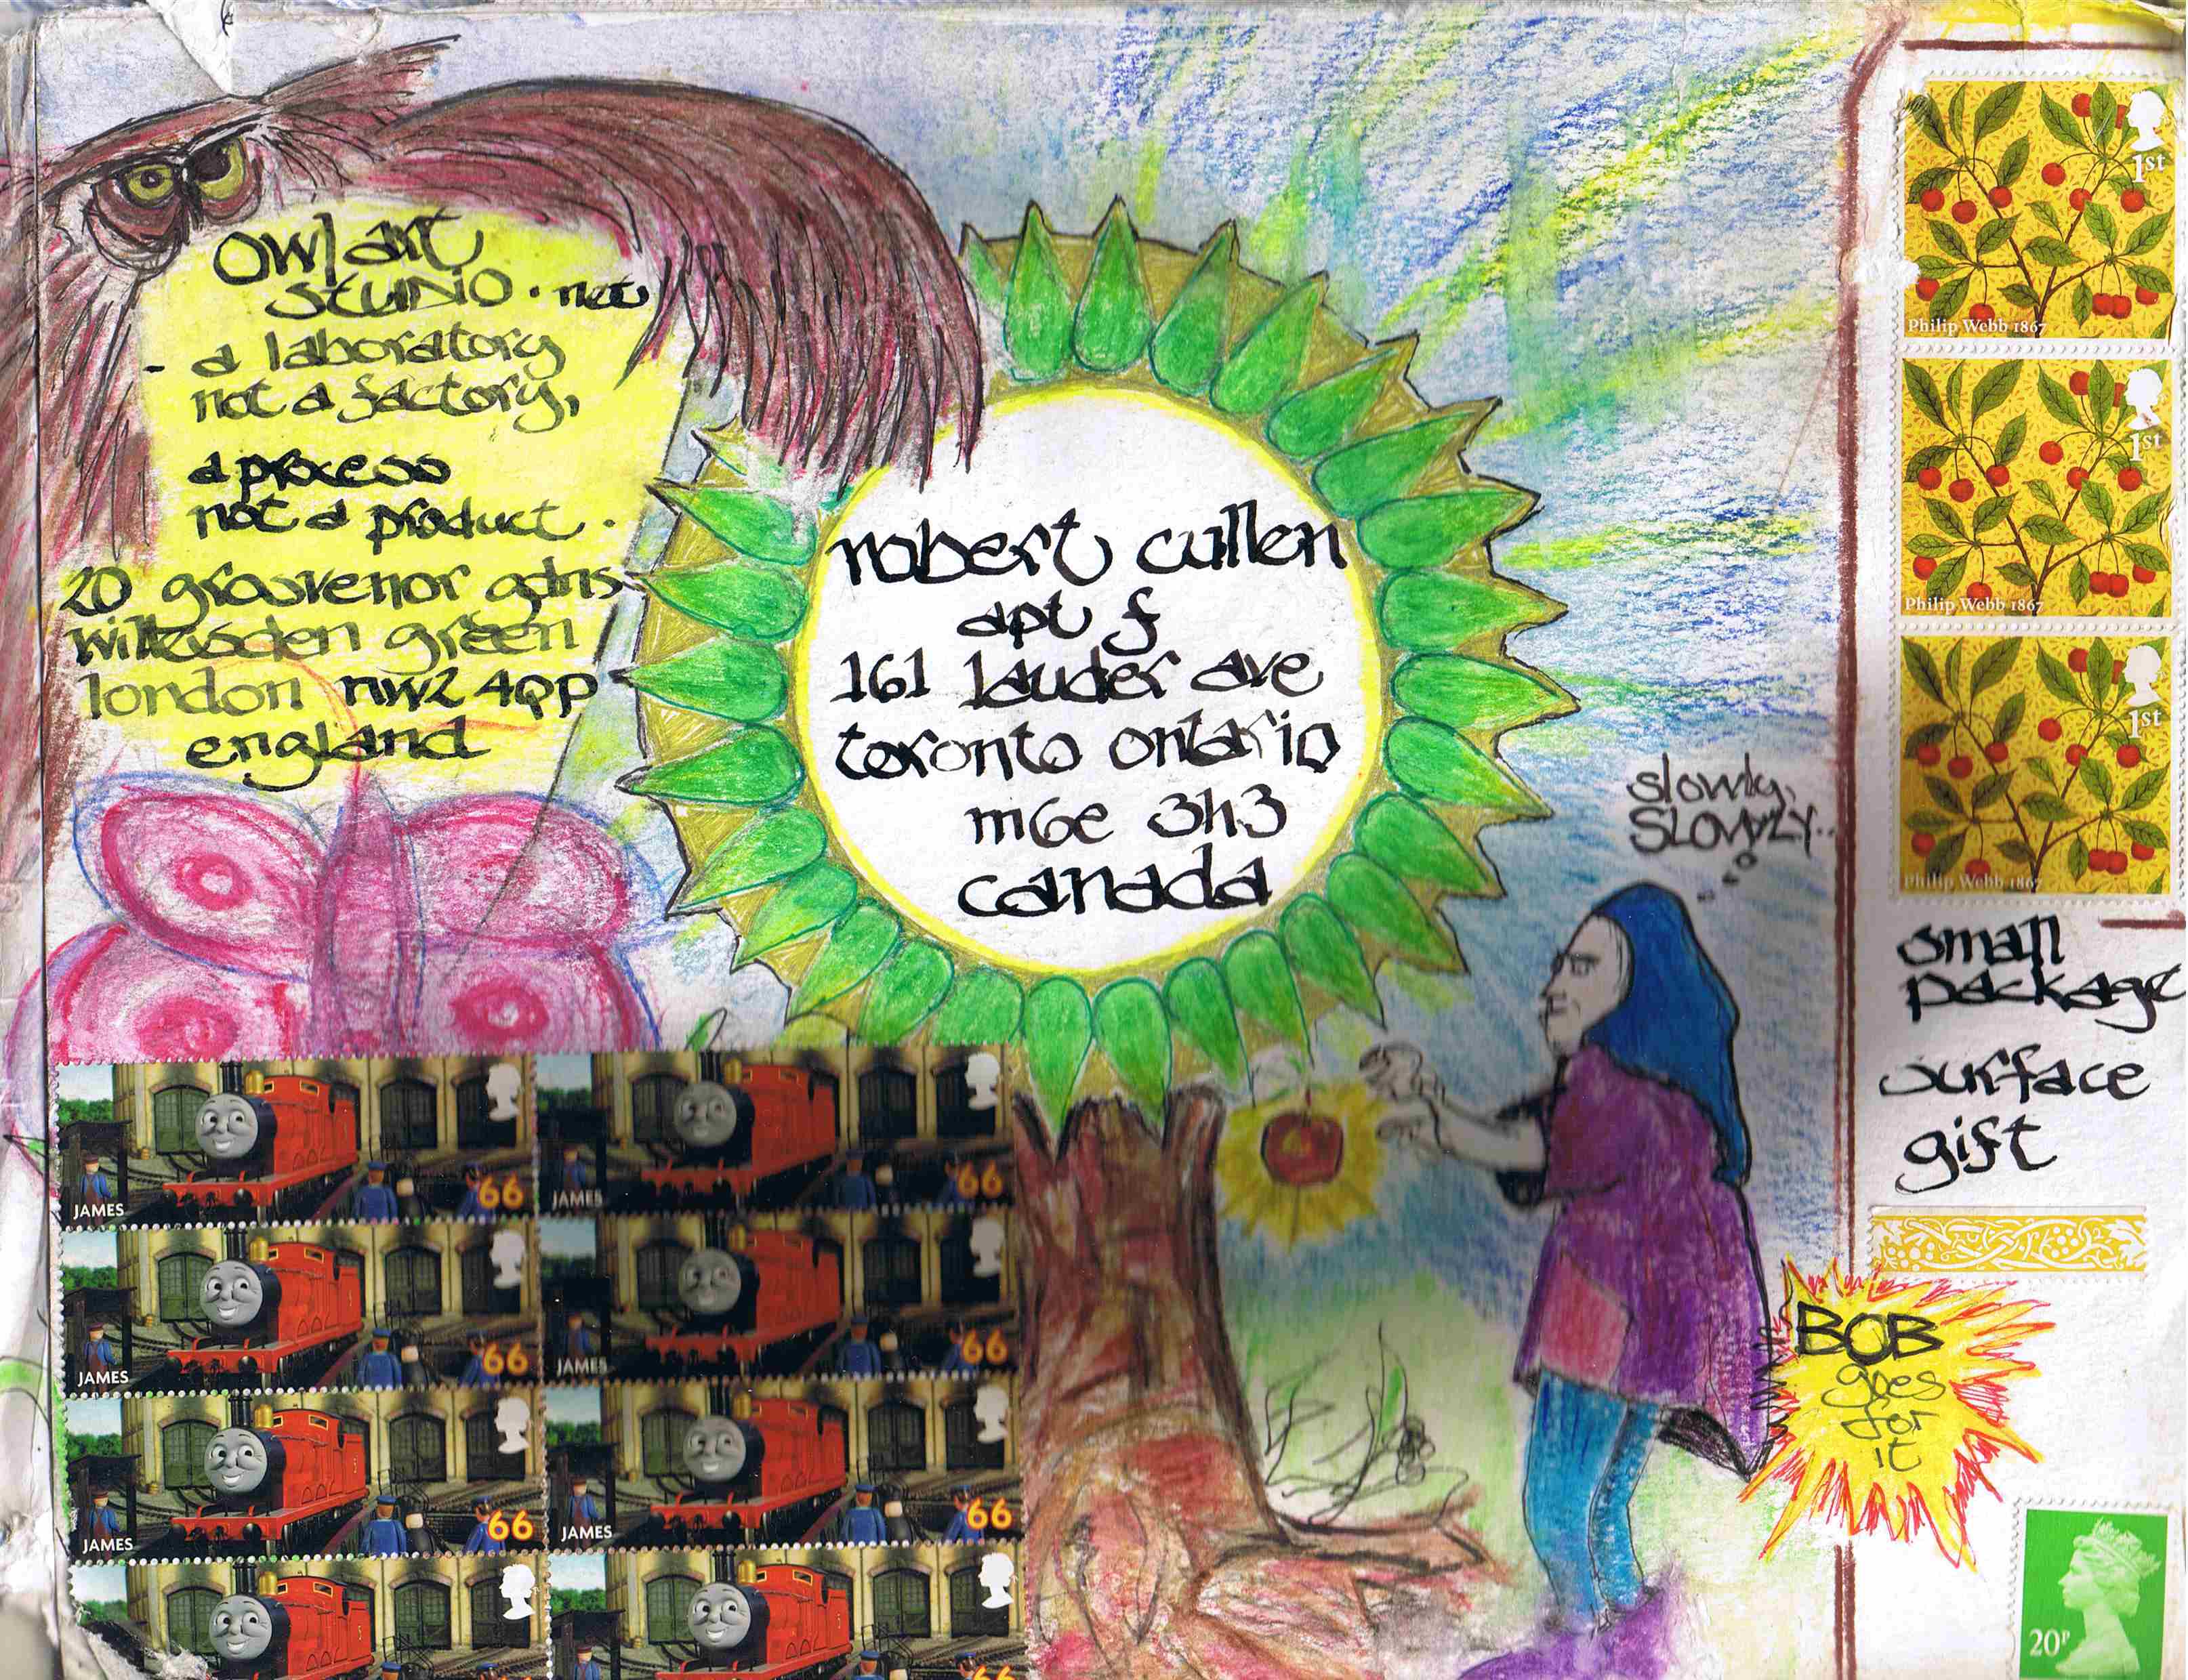 owl art
studio . not
- a laboratory
not a factory,
a process
not a product .
20 grosvenor gdns
willesden green
london nw2 4qp
england
robert cullen
apt f
161 lauder ave
toronto ontario
m6e 3h3
canada
slowly,
SLOWLY..
1st
Philip Webb 1867
1st
Philip Webb 1867
1st
Philip Webb 1867
small
package
surface
gift
BOB
goes
for
it
20P
JAMES
66
JAMES
66
JAMES
66
JAMES
66
JAMES
66
JAMES
66
66